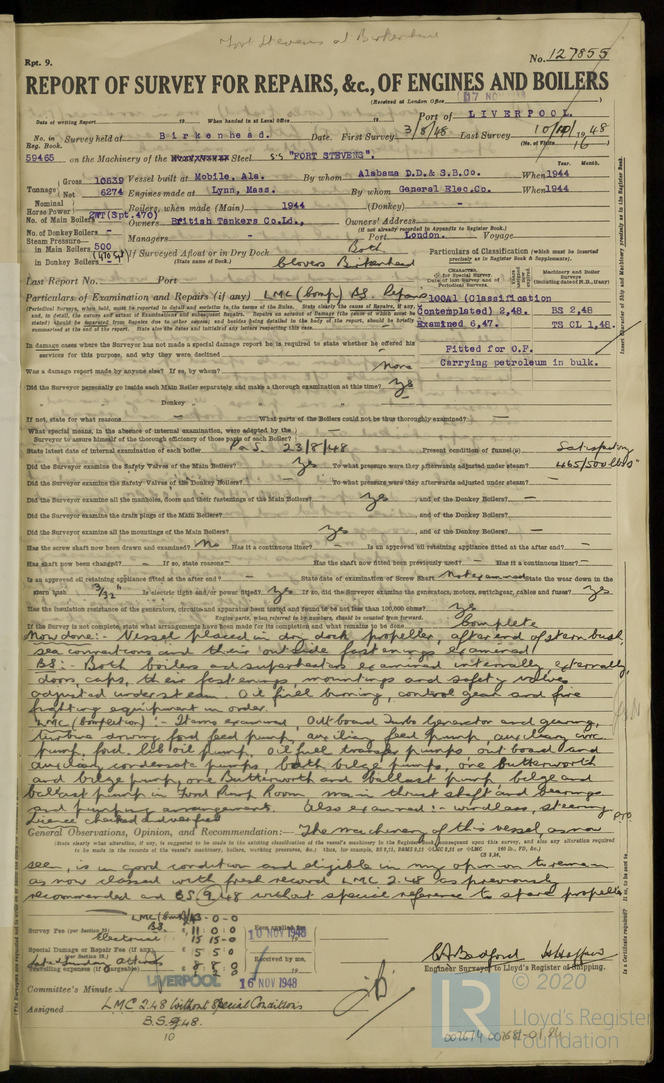 Fort Stevens at Birkenhead
Rpt. 9.
No. 127855
REPORT OF SURVEY FOR REPAIRS, &c., OF ENGINES AND BOILERS
(Received at London Office 17 NO
Date of writing Report 19 When handed in at Local Office 19 Port of LIVERPOOL.
No. in Reg. Book. Survey held at Birkenhead. Date. First Survey 3/8/48 Last Survey 10/10/1948
(No. of Visits 16
59465 on the Machinery of the Steel S.S "FORT STEVENS".
Year. Month.
Tonnage Gross 10639 Vessel built at Mobile, Ala. By whom Alabama D.D.& S.B.Co. When 1944
Net 6274 Engines made at Lynn, Mass. By whom General Elec.Co. When 1944
Nominal Horse Power 2WT(Spt.470) Boilers, when made (Main) 1944 (Donkey) -
No. of Main Boilers Owners British Tankers Co.Ld., Owners' Address
(if not already recorded in Appendix to Register Book.)
No. of Donkey Boilers - Managers - Port London. Voyage
Steam Pressure in Main Boilers 500 If Surveyed Afloat or in Dry Dock Both
in Donkey Boilers - (State name of Dock.) Clovers Birkenhead
Particulars of Classification (which must be inserted precisely as in Register Book & Supplements).
Last Report No. Port
Particulars of Examination and Repairs (if any) LMC (Comp) BS. Repairs
100A1 (Classification
Contemplated) 2,48. BS 2,48
Examined 6,47. TS CL 1,48.
Fitted for O.F.
Carrying petroleum in bulk.
In damage cases where the Surveyor has not made a special damage report he is required to state whether he offered his
services for this purpose, and why they were declined
Was a damage report made by anyone else? If so, by whom? None
Did the Surveyor personally go inside each Main Boiler separately and make a thorough examination at this time? Yes
" " Donkey " " " "
If not, state for what reasons What parts of the Boilers could not be thoroughly examined?
What special means, in the absence of internal examination, were adopted by the
Surveyor to assure himself of the thorough efficiency of those parts of each Boiler?
State latest date of internal examination of each boiler P & S. 23/8/48 Present condition of funnel(s) Satisfactory
Did the Surveyor examine the Safety Valves of the Main Boilers? Yes To what pressure were they afterwards adjusted under steam? 465/500 lbs □"
Did the Surveyor examine the Safety Valves of the Donkey Boilers? - To what pressure were they afterwards adjusted under steam? -
Did the Surveyor examine all the manholes, doors and their fastenings of the Main Boilers? Yes, and of the Donkey Boilers? -
Did the Surveyor examine the drain plugs of the Main Boilers?, and of the Donkey Boilers?
Did the Surveyor examine all the mountings of the Main Boilers? Yes, and of the Donkey Boilers? -
Has the screw shaft now been drawn and examined? No Has it a continuous liner? - Is an approved oil retaining appliance fitted at the after end? -
Has shaft now been changed? - If so, state reasons Has the shaft now fitted been previously used? - Has it a continuous liner? -
Is an approved oil retaining appliance fitted at the after end? - State date of examination of Screw Shaft Not examined State the wear down in the
stern bush 3/32" Is electric light and/or power fitted? Yes If so, did the Surveyor examine the generators, motors, switchgear, cables and fuses? Yes
Has the insulation resistance of the generators, circuits and apparatus been tested and found to be not less than 100,000 ohms? Yes
Engine parts, when referred to by numbers, should be counted from forward.
If the Survey is not complete, state what arrangements have been made for its completion and what remains to be done. Complete
Now done:- Vessel placed in dry dock propeller, after end of stern bush,
sea connections and their outside fastenings examined
BS:- Both boilers and superheaters examined internally, externally,
doors, caps, their fastenings, mountings and safety valves
adjusted under steam. Oil fuel burning, control gear and fire
fighting equipment in order.
LMC (Completion):- Items examined, Outboard turbo generator and gearing,
turbine driving ford feed pump, auxiliary feed pump, auxiliary circ
pump, ford. lub oil pump, oil fuel transfer pumps outboard and
auxiliary condensate pumps, both bilge pumps, one butterworth
and bilge pump, one Butterworth and ballast pump bilge and
ballast pump in Ford Pump Room main thrust shaft and bearings
and pumping arrangements. Also examined:- windlass, steering
General Observations, Opinion, and Recommendation:- The machinery of this vessel, as now
(State clearly what alteration, if any, is suggested to be made in the existing classification of the vessel's machinery in the Register Book consequent upon this survey, and also any alteration required
to be made in the records of the vessel's machinery, boilers, working pressures, &c.
seen, is in good condition and eligible in my opinion to remain
as now classed with fresh record LMC 2.48 as previously
recommended and BS. 9.48 without special reference to spare propeller
LMC (Comp)
Survey Fee (per Section) BS. £ 11 0 0 Fees applied for 10 NOV 1948
Electrical 15 15-0
Special Damage or Repair Fee (if any) £ 5 5 0 Received by me,
(per Section 29.)
8 8 0
Travelling expenses (if chargeable)
Committee's Minute LIVERPOOL 16 NOV 1948
Engineer Surveyor to Lloyd's Register of Shipping.
Assigned LMC 2.48 Without Special Conditions
B.S. 9.48.
10
© 2020
LR
Lloyd's Register
Foundation